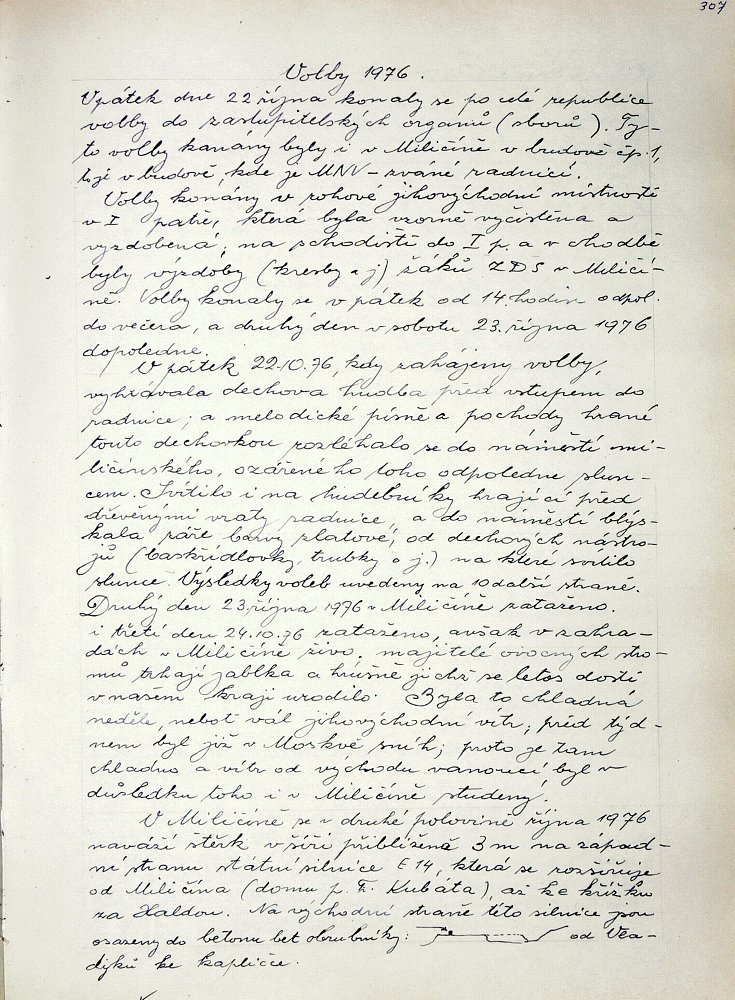 307
Volby 1976.
V pátek dne 22 října konaly se po celé republice
volby do zastupitelských organů (sborů). Ty-
to volby kanány byly i v Miličíně v budově čp. 1,
to je v budově, kde je MNV – zvané radnicí.
Volby konány v rohové jihovýchodní místnosti
v I patře, která byla vzorně vyčistěna a
vyzdobená; na schodišti do I p. a v chodbě
byly výzdoby (kresby a j) žáků ZDŠ v Miličí-
ně. Volby konaly se v pátek od 14. hodin odpol.
do večera, a druhý den v sobotu 23. října 1976
dopoledne.
V pátek 22.10.76, kdy zahájeny volby,
vyhrávala dechova hudba před vstupem do
radnice; a melodické písně a pochody hrané
touto dechovkou rozléhalo se do naměstí mi-
ličínského, ozářeného toho odpoledne slun-
cem. Svítilo i na hudebníky hrající před
dřevěnými vraty radnice, a do náměstí blýs-
kala záře barvy zlatové, od dechových nástro-
jů (baskřídlovky, trubky a j.) na které svítilo
slunce. Výsledky voleb uvedeny na 10 další straně.
Druhý den 23. října 1976 v Miličíně zataženo.
i třetí den 24.10.76 zataženo, avšak v zahra-
dách v Miličíně živo. majitelé ovocných stro-
mů trhají jablka a hrušně jichž se letos dosti
v našem kraji urodilo. Byla to chladná
neděle, neboť vál jihovýchodní vítr; před týd-
nem byl již v Moskvě sníh; proto je tam
chladno a vítr od východu vanoucí byl v
důsledku toho i v Miličíně studený.
V Miličíně se v druhé polovině října 1976
naváží štěrk v šíři přibližně 3 m na západ-
ní stranu státní silnice E 14, která se rozšiřuje
od Miličína (domu p. F. Kubáta), až ke křížku
za Haldou. Na východní straně této silnice jsou
osazeny do betonu bet obrubníky: od Vla-
dyků ke kapličce.